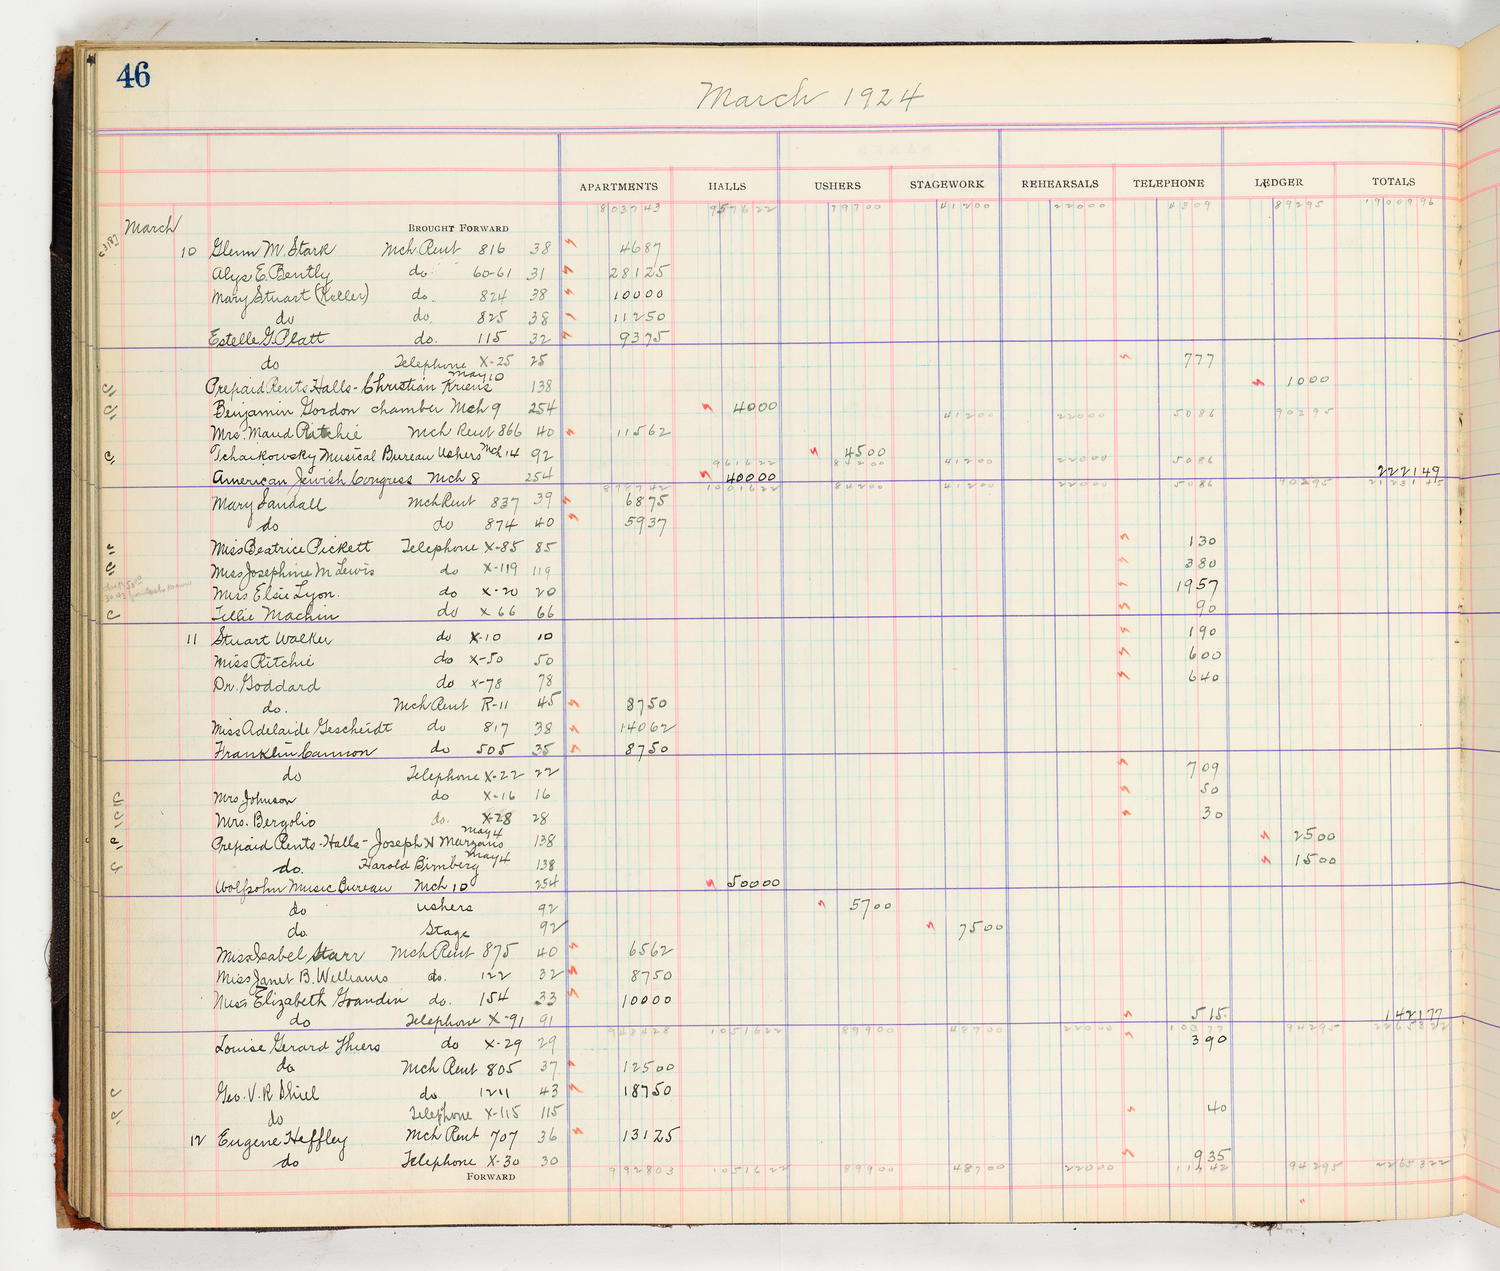 46
March 1924
APARTMENTS HALLS USHERS STAGEWORK REHEARSALS TELEPHONE LEDGER TOTALS
803743 957622 79700 41200 22000 4309 89295 1900996
March BROUGHT FORWARD
10 Glenn M. Stark Mch Rent 816 38 4687
Alys E. Bently do 60-61 31 28125
Mary Stuart (Keller) do. 824 38 10000
do do. 825 38 11250
Estelle G. Platt do. 115 32 9375
do Telephone X-25 25 777
May 10
Prepaid Rents Halls - Christian Kriens 138 1000
Benjamin Gordon chamber Mch 9 254 4000
41200 22000 5086 90295
Mrs. Maud Ritchie Mch Rent 866 40 11562
Tchaikowsky Musical Bureau Ushers Mch 14 92 4500
961622 84200 41200 22000 5086
American Jewish Congress Mch 8 254 40000 222149
1001622 84200 41200 22000 5086 90295
Mary Landall Mch Rent 837 39 6875
do do 874 40 5937
Miss Beatrice Pickett Telephone X-85 85 130
Miss Josephine M Lewis do X-119 119 380
Miss Elsie Lyon. do X-20 20 1957
Tillie Machin do X 66 66 90
11 Stuart Walker do X-10 10 190
Miss Ritchie do X-50 50 600
Dr. Goddard do X-78 78 640
do. Mch Rent R-11 45 8750
Miss Adelaide Gescheidt do 817 38 14062
Franklin Cannon do 505 35 8750
do Telephone X-22 22 709
Mrs Johnson do X-16 16 50
Mrs. Bergolio do. X-28 28 30
May 4
Prepaid Rents-Halls- Joseph N 138 2500
May 4
do. Harold Bimberg 138 1500
Wolfsohn Music Bureau Mch 10 254 50000
do ushers 92 5700
do. Stage 92 7500
Miss Isabel Starr Mch Rent 875 40 6562
Miss Janet B. Williams do. 122 32 8750
Miss Elizabeth Grandin do. 154 33 10000
do Telephone X-91 91 515 142177
948428 1051622 89900 48700 22000 10377 94295 2265322
Louise Gerard Thiers do X-29 29 390
do Mch Rent 805 37 12500
Geo. V. R Shiel do. 1211 43 18750
do Telephone X-115 115 40
12 Eugene Heffley Mch Rent 707 36 13125
do Telephone X-30 30 935
FORWARD 992803 1051622 89900 48700 22000 11742 94295 2265322